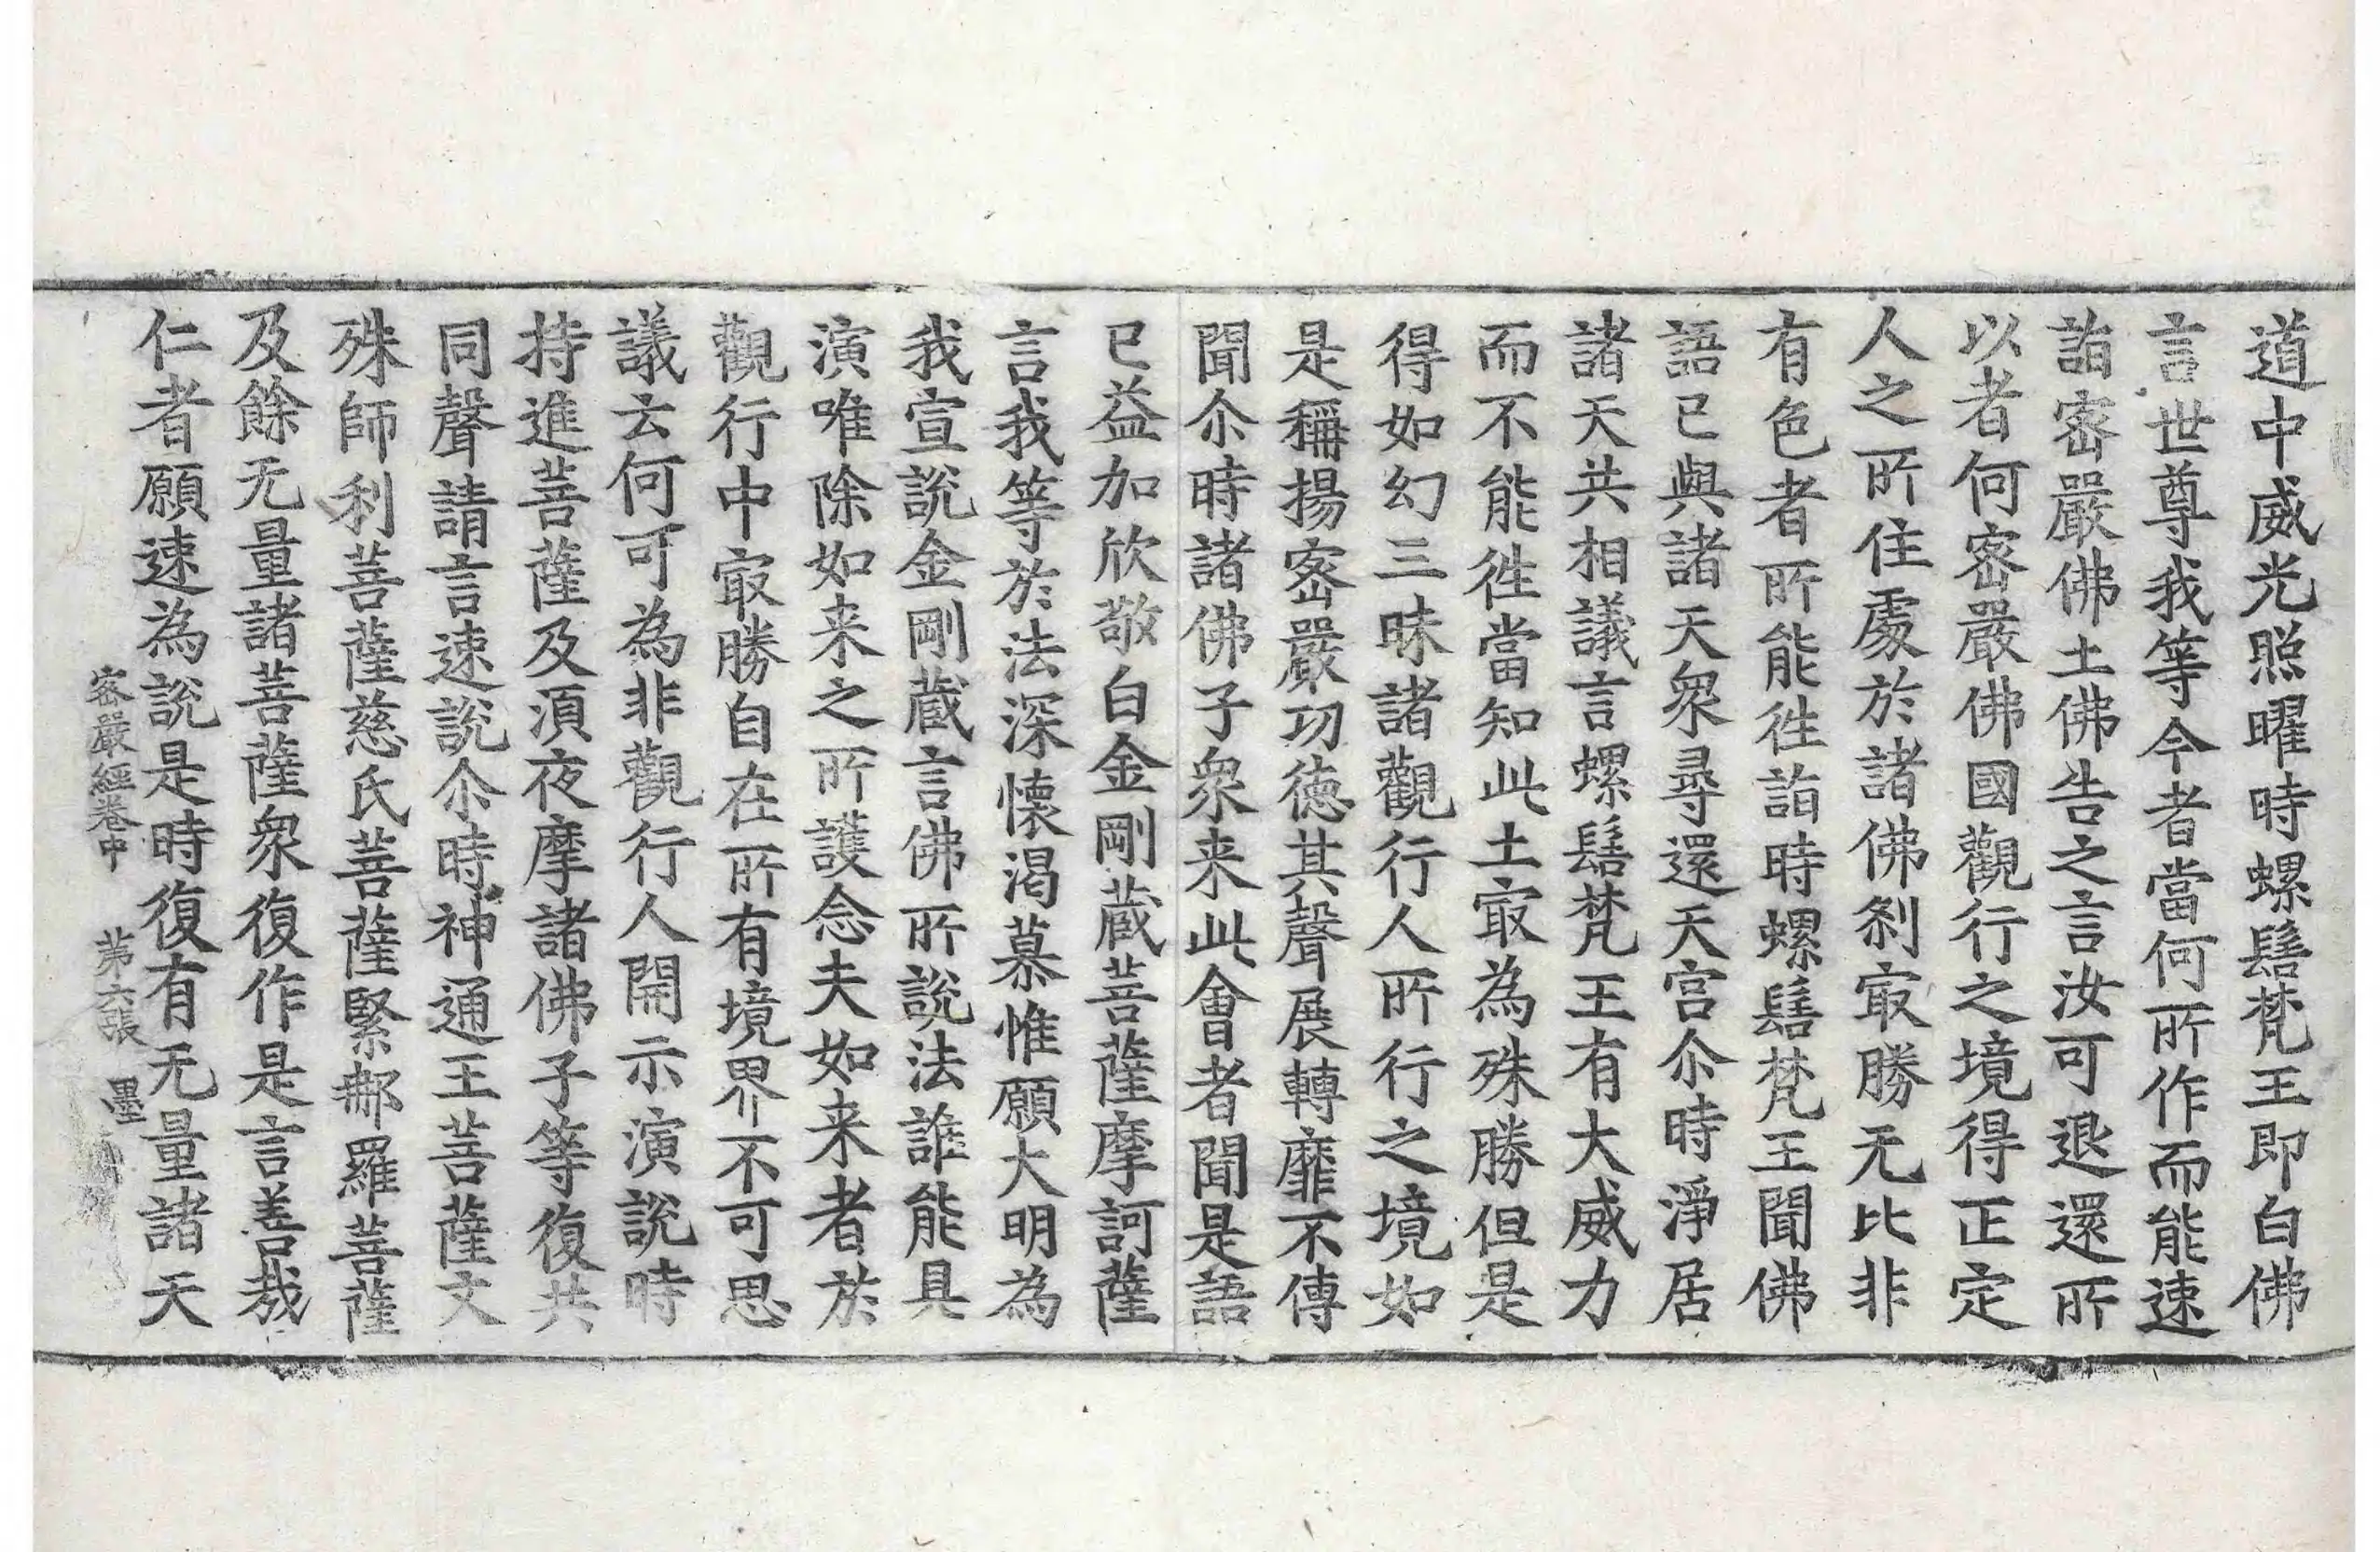 道中威光照曜時螺髻梵王即白佛
言世尊我等今者當何所作而能速
詣密嚴佛土佛告之言汝可退還所
以者何密嚴佛國觀行之境得正定
人之所住處於諸佛剎㝡勝无比非
有色者所能徃詣時螺髻梵王聞佛
語已與諸天衆尋還天宮尒時淨居
諸天共相議言螺髻梵王有大威力
而不能徃當知此土㝡為殊勝但是
得如幻三昧諸觀行人所行之境如
是稱揚密嚴功徳其聲展轉靡不傳
聞尒時諸佛子衆来此會者聞是語
已益加欣敬白金剛蔵菩薩摩訶薩
言我等於法深懷渴慕惟願大明為
我宣說金剛蔵言佛所說法誰能具
演唯除如来之所護念夫如来者於
觀行中㝡勝自在所有境界不可思
議云何可為非觀行人開示演說時
持進菩薩及湏夜摩諸佛子等復共
同聲請言速說尒時神通王菩薩文
殊師利菩薩慈氏菩薩緊那羅菩薩
及餘无量諸菩薩衆復作是言善哉
仁者願速為說是時復有无量諸天
密嚴經卷中 苐六張 墨